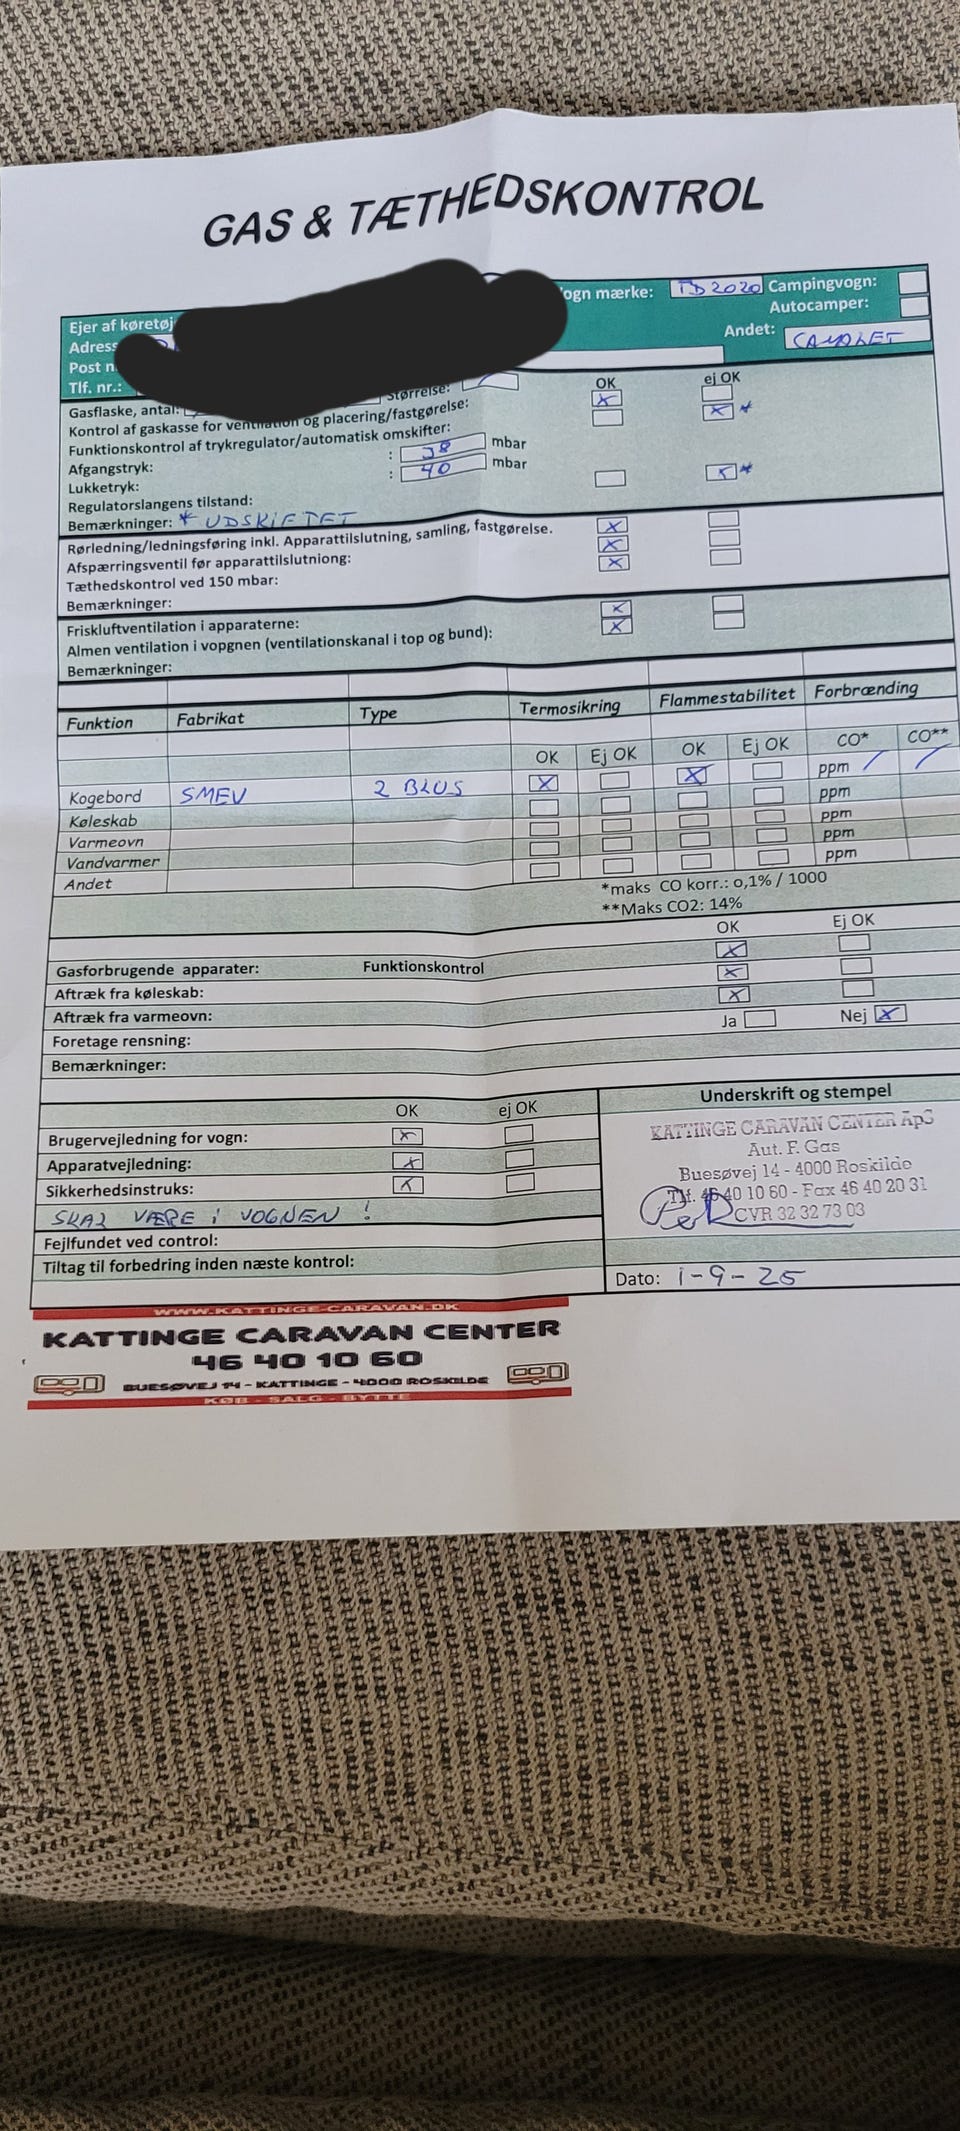 GAS & TÆTHEDSKONTROL
Ejer af køretøj
ogn mærke: TD2020 Campingvogn:
Autocamper:
Adress
Andet: CAMPLET
Post n
Tlf. nr.:
Gasflaske, antal: Størrelse: OK ej OK
Kontrol af gaskasse for ventilation og placering/fastgørelse: X
Funktionskontrol af trykregulator/automatisk omskifter: X *
Afgangstryk: : 38 mbar
Lukketryk: : 40 mbar
Regulatorslangens tilstand: X *
Bemærkninger: * UDSKIFTET
Rørledning/ledningsføring inkl. Apparattilslutning, samling, fastgørelse. X
Afspærringsventil før apparattilslutniong: X
Tæthedskontrol ved 150 mbar: X
Bemærkninger:
Friskluftventilation i apparaterne: X
Almen ventilation i vopgnen (ventilationskanal i top og bund): X
Bemærkninger:
Funktion Fabrikat Type Termosikring Flammestabilitet Forbrænding
OK Ej OK OK Ej OK CO* CO**
Kogebord SMEV 2 BLUS X X ppm / /
Køleskab ppm
Varmeovn ppm
Vandvarmer ppm
Andet ppm
*maks CO korr.: o,1% / 1000
**Maks CO2: 14%
OK Ej OK
Gasforbrugende apparater: Funktionskontrol X
Aftræk fra køleskab: X
Aftræk fra varmeovn: X
Foretage rensning: Ja Nej X
Bemærkninger:
OK ej OK
Brugervejledning for vogn: X
Apparatvejledning: X
Sikkerhedsinstruks: X
SKAL VÆRE i VOGNEN !
Fejlfundet ved control:
Tiltag til forbedring inden næste kontrol:
Underskrift og stempel
KATTINGE CARAVAN CENTER ApS
Aut. F. Gas
Buesøvej 14 - 4000 Roskilde
Tlf. 46 40 10 60 - Fax 46 40 20 31
CVR 32 32 73 03
Dato: 1-9-25
WWW.KATTINGE-CARAVAN.DK
KATTINGE CARAVAN CENTER
46 40 10 60
BUESØVEJ 14 - KATTINGE - 4000 ROSKILDE
KØB - SALG - BYTTE